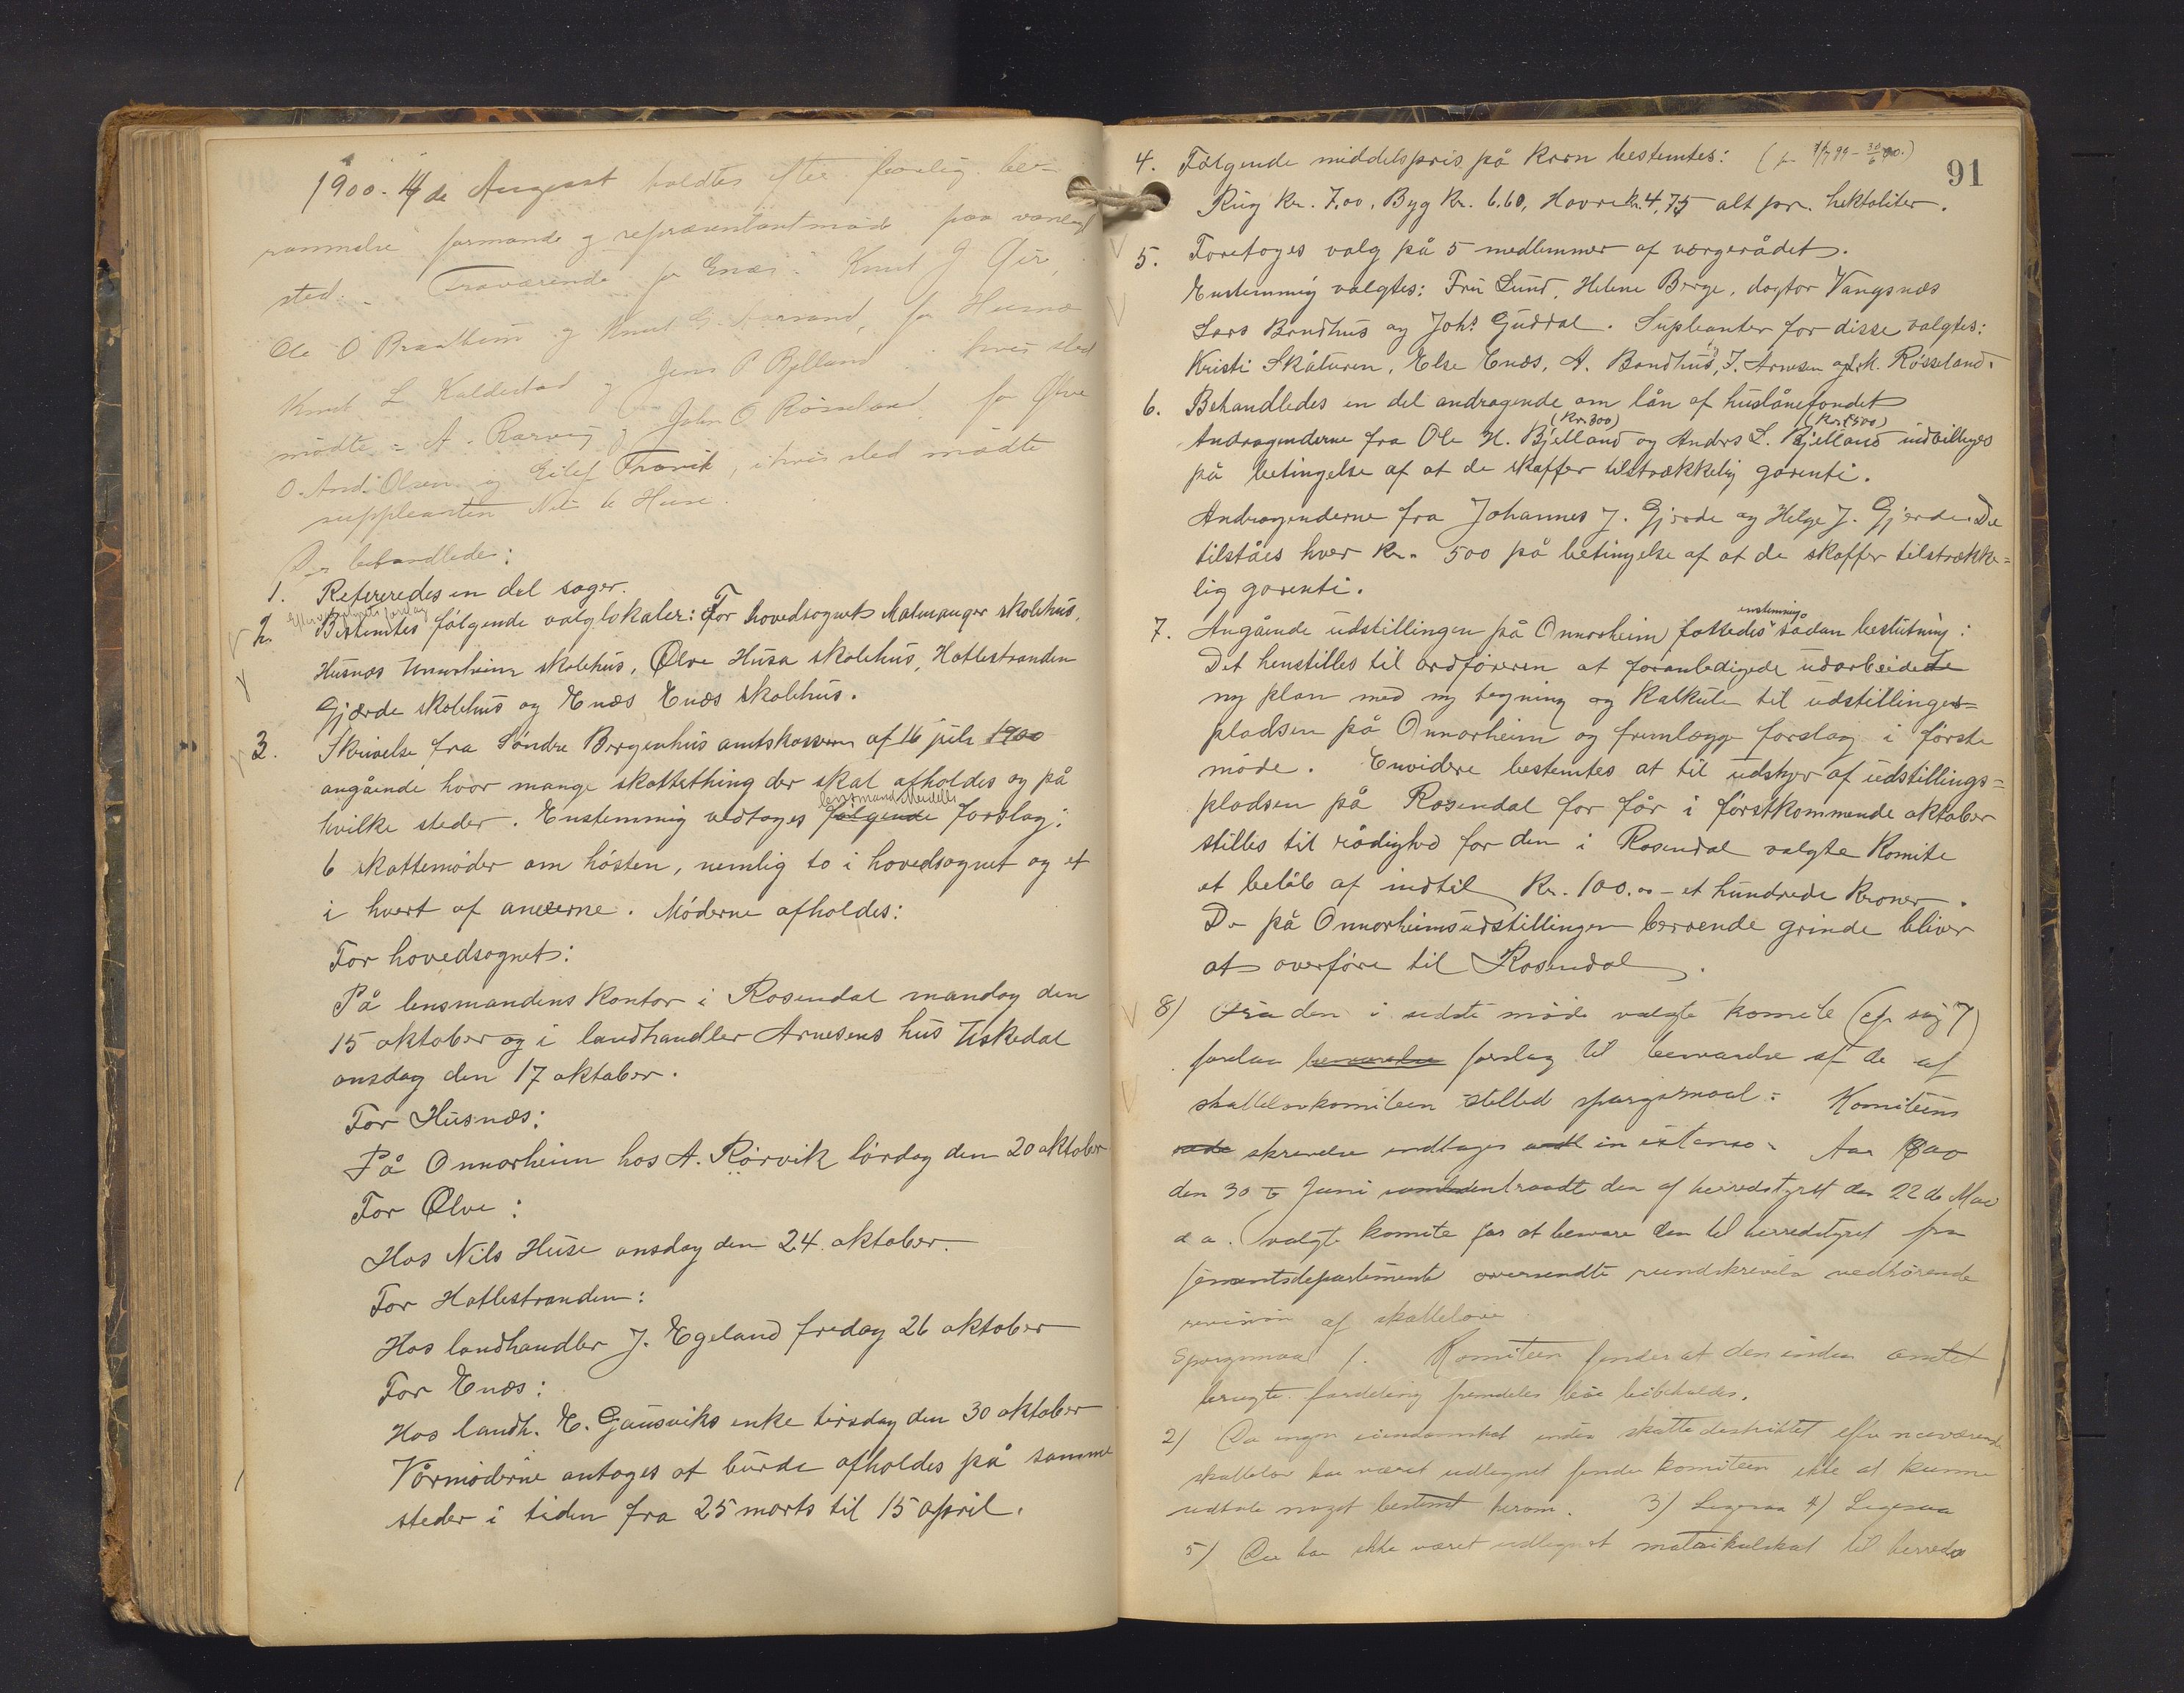 1900. 4de August holdtes efter lovlig be-
rammelse formands og repræsentantmøde paa vanligt
sted. Fraværende for Enæs: Knut J Øie,
Ole O Braathun og Knut G. for Husnæs
Knut L Kaldestad og Jens P Bjelland hvis sted
mødte A. Rørvig og John O Røsseland for Ølve
O. And. Olsen og Eilef Travik, i hvis sted mødte
suppleanten Nils Huse.
Der behandledes:
1. Refereredes en del sager.
Efter forslag
2. Bestemtes følgende valglokaler: For hovedsognet Malmanger skolehus,
Husnæs Unnarheim skolehus, Ølve Husa skolehus, Hatlestranden
Gjærde skolehus og Enæs Enæs skolehus.
3. Skrivelse fra Söndre Bergenhus amtskasserer af 16 juli 1900
angående hvor mange skattething der skal afholdes og på
lensmand Meidells
hvilke steder. Enstemmig vedtoges følgende forslag:
6 skattemöder om hösten, nemlig to i hovedsognet og et
i hvert af anexerne. Möderne afholdes:
For hovedsognet:
På lensmandens kontor i Rosendal mandag den
15 oktober og i landhandler Arnesens hus Uskedal
onsdag den 17 oktober.
For Husnæs:
På Onnarheim hos A. Rörvik lördag den 20 oktober
For Ølve:
Hos Nils Huse onsdag den 24. oktober.
For Hatlestranden:
Hos landhandler J. Egeland fredag 26 oktober
For Enæs:
Hos landh. E. Gausviks enke tirsdag den 30 oktober
Vårmöderne antoges at burde afholdes på samme
steder i tiden fra 25 marts til 15 april.
91
4. Følgende middelspris på korn bestemtes: (fr 1/7 99 - 30/6 00.)
Rug kr. 7,00, Byg kr. 6,60, Havre kr. 4,75 alt pr. hektoliter.
5. Foretoges valg på 5 medlemmer af værgerådet.
Enstemmig valgtes: Fru Lund, Helene Berge, dogtor Vangsnæs
Lars Bondhus og Johs Guddal. Supleanter for disse valgtes:
Kristi Skåturen, Else Enæs, A. Bondhus, J. Arnesen og L. M. Røsseland.
6. Behandledes en del andragende om lån af huslånefondet
(Kr. 300) (Kr. 500)
Andragenderne fra Ole H. Bjelland og Anders L. Bjelland indvilliges
på betingelse af at de skaffer tilstrækkelig garenti.
Andragenderne fra Johannes J. Gjerde og Helge J. Gjerde. De
tilståes hver kr. 500 på betingelse af at de skaffer tilstrække=
lig garenti.
enstemmig
7. Angående udstillingen på Onnarheim fattedes sådan beslutning:
Det henstilles til ordföreren at foranledigede udarbeidede
ny plan med ny tegning og kalkule til udstillings=
pladsen på Onnarheim og fremlægge forslag i förste
möde. Envidere bestemtes at til udstyr af udstillings=
pladsen på Rosendal for får i förstkommende oktober
stilles til rådighed for den i Rosendal valgte Komite
et belöb af indtil Kr. 100.00 - et hundrede kroner.
De på Onnarheimsudstillingen beroende grinde bliver
at overföre til Rosendal.
8) Fra den i sidste möde valgte komite (cfr sag 7)
forelaa besvarelse forslag til besvarelse af de af
skattelovkomiteen stilled spørgsmaal: Komiteens
skrivelse indtages in extenso. Aar 1900
den 30 te Juni sammentraadte den af herredstyret den 22de Mai
d. a. valgte komite for at besvare den til herredstyret fra
finantsdepartementet oversendte rundskrivelse vedrörende
revision af skattelove.
Spørgsmaal 1. Komiteen finder at den inden amtet
brugte fordeling fremdeles bör bibeholdes.
2) Da ingen eiendomskat inden skattedistriktet efter nuværende
skattelov har været udlignet finder komiteen ikke at kunne
udtale noget bestemt herom. 3) Ligesaa 4) Ligesaa
5) Der har ikke været udlignet matrikulskat til herreds